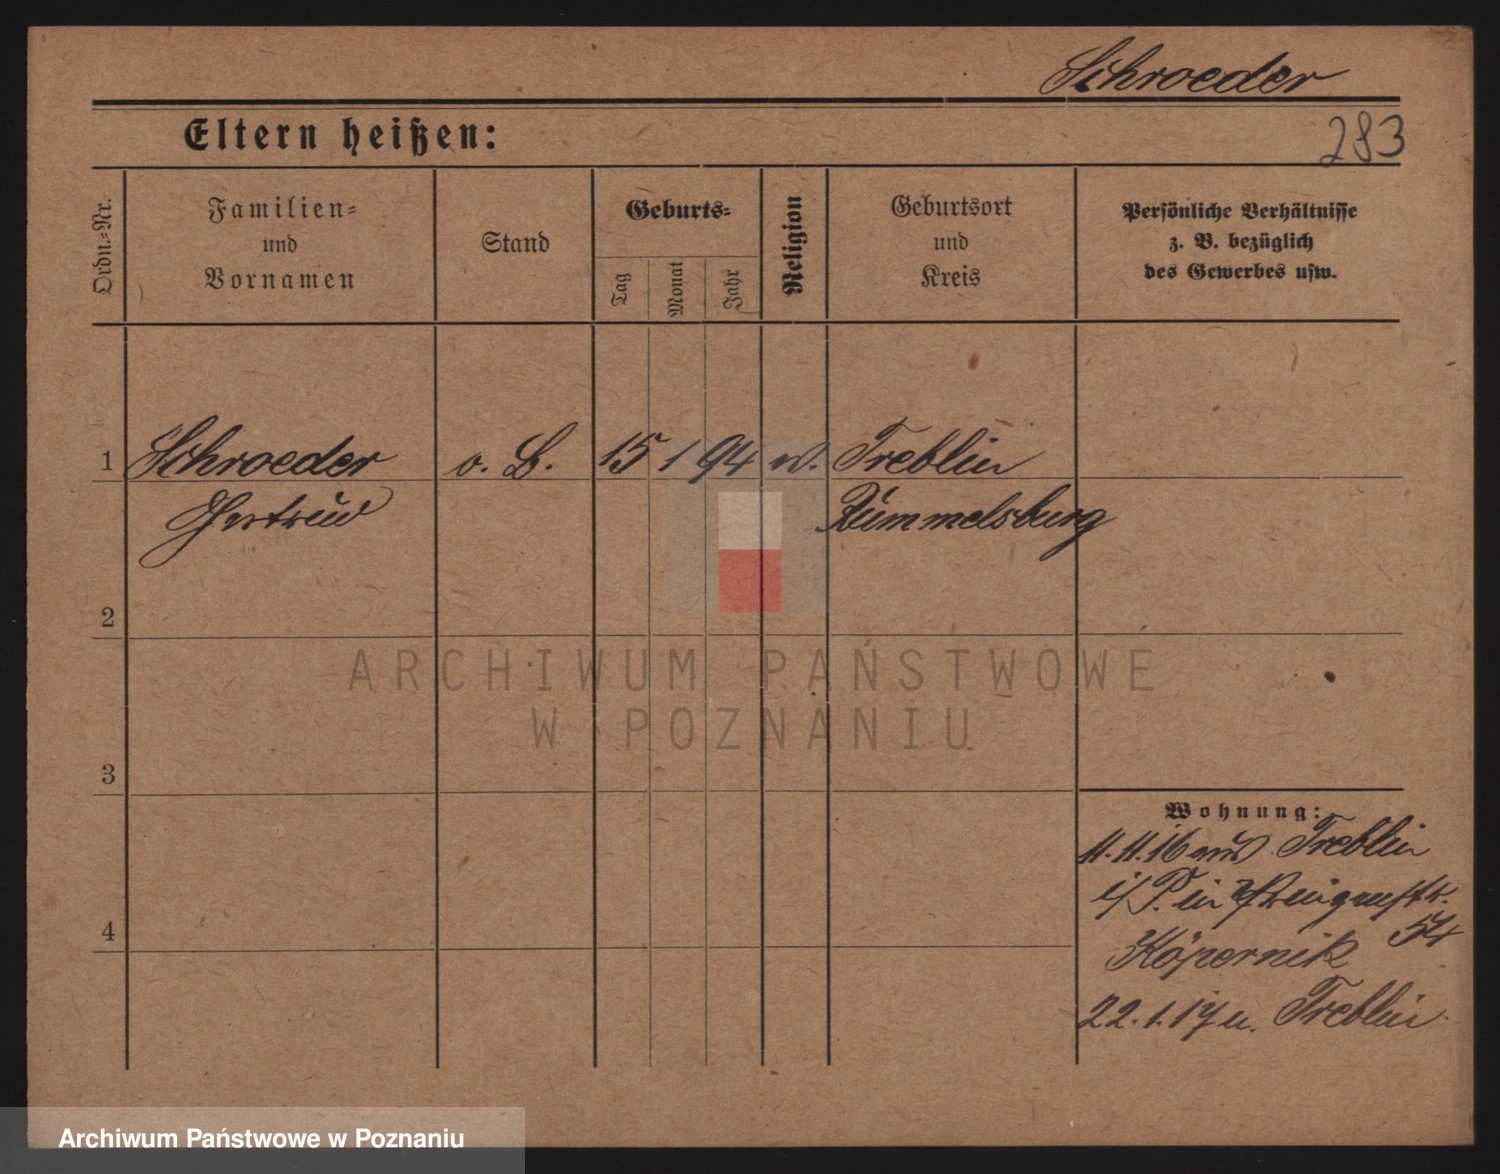 Schroeder
Eltern heißen:
283
Ordn.-Nr.
Familien-
und
Vornamen
Stand
Geburts-
Tag
Monat
Jahr
Religion
Geburtsort
und
Kreis
Persönliche Verhältnisse
z. B. bezüglich
des Gewerbes usw.
1 Schroeder o. B. 15 1 94 ev. Treblin
Gertrud Rummelsburg
2
3
4
Wohnung:
11.11.16 aus Treblin
i/P. in
54
Köpernik
22.1.17 n. Treblin
ARCHIWUM PAŃSTWOWE
W POZNANIU
Archiwum Państwowe w Poznaniu